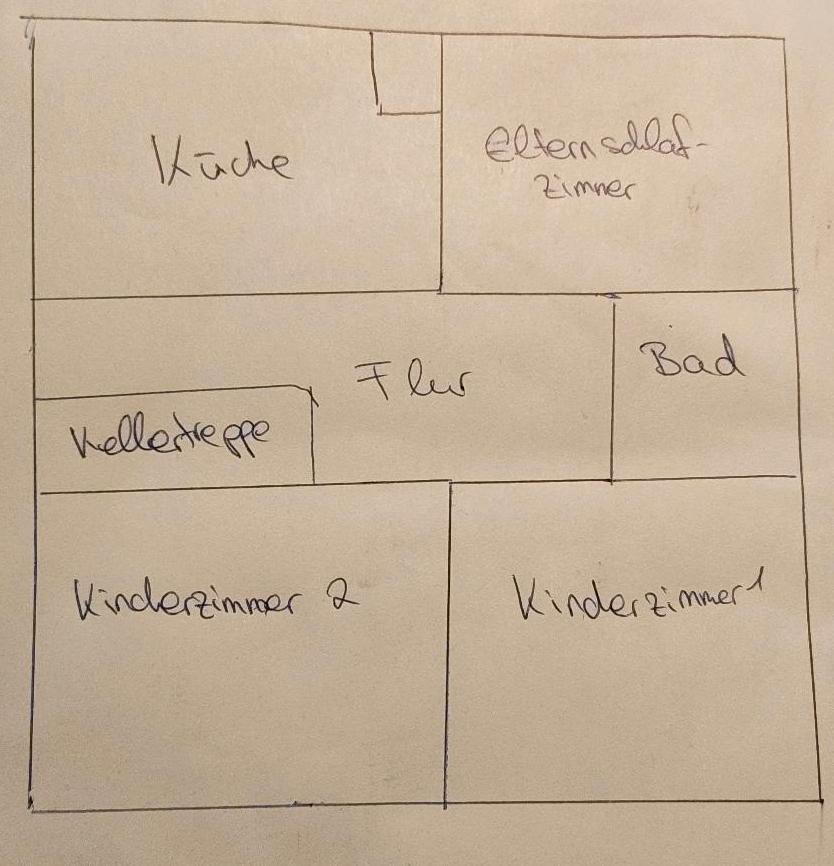 Küche
Elternschlaf-
zimmer
Flur
Bad
Kellertreppe
Kinderzimmer 2
Kinderzimmer 1